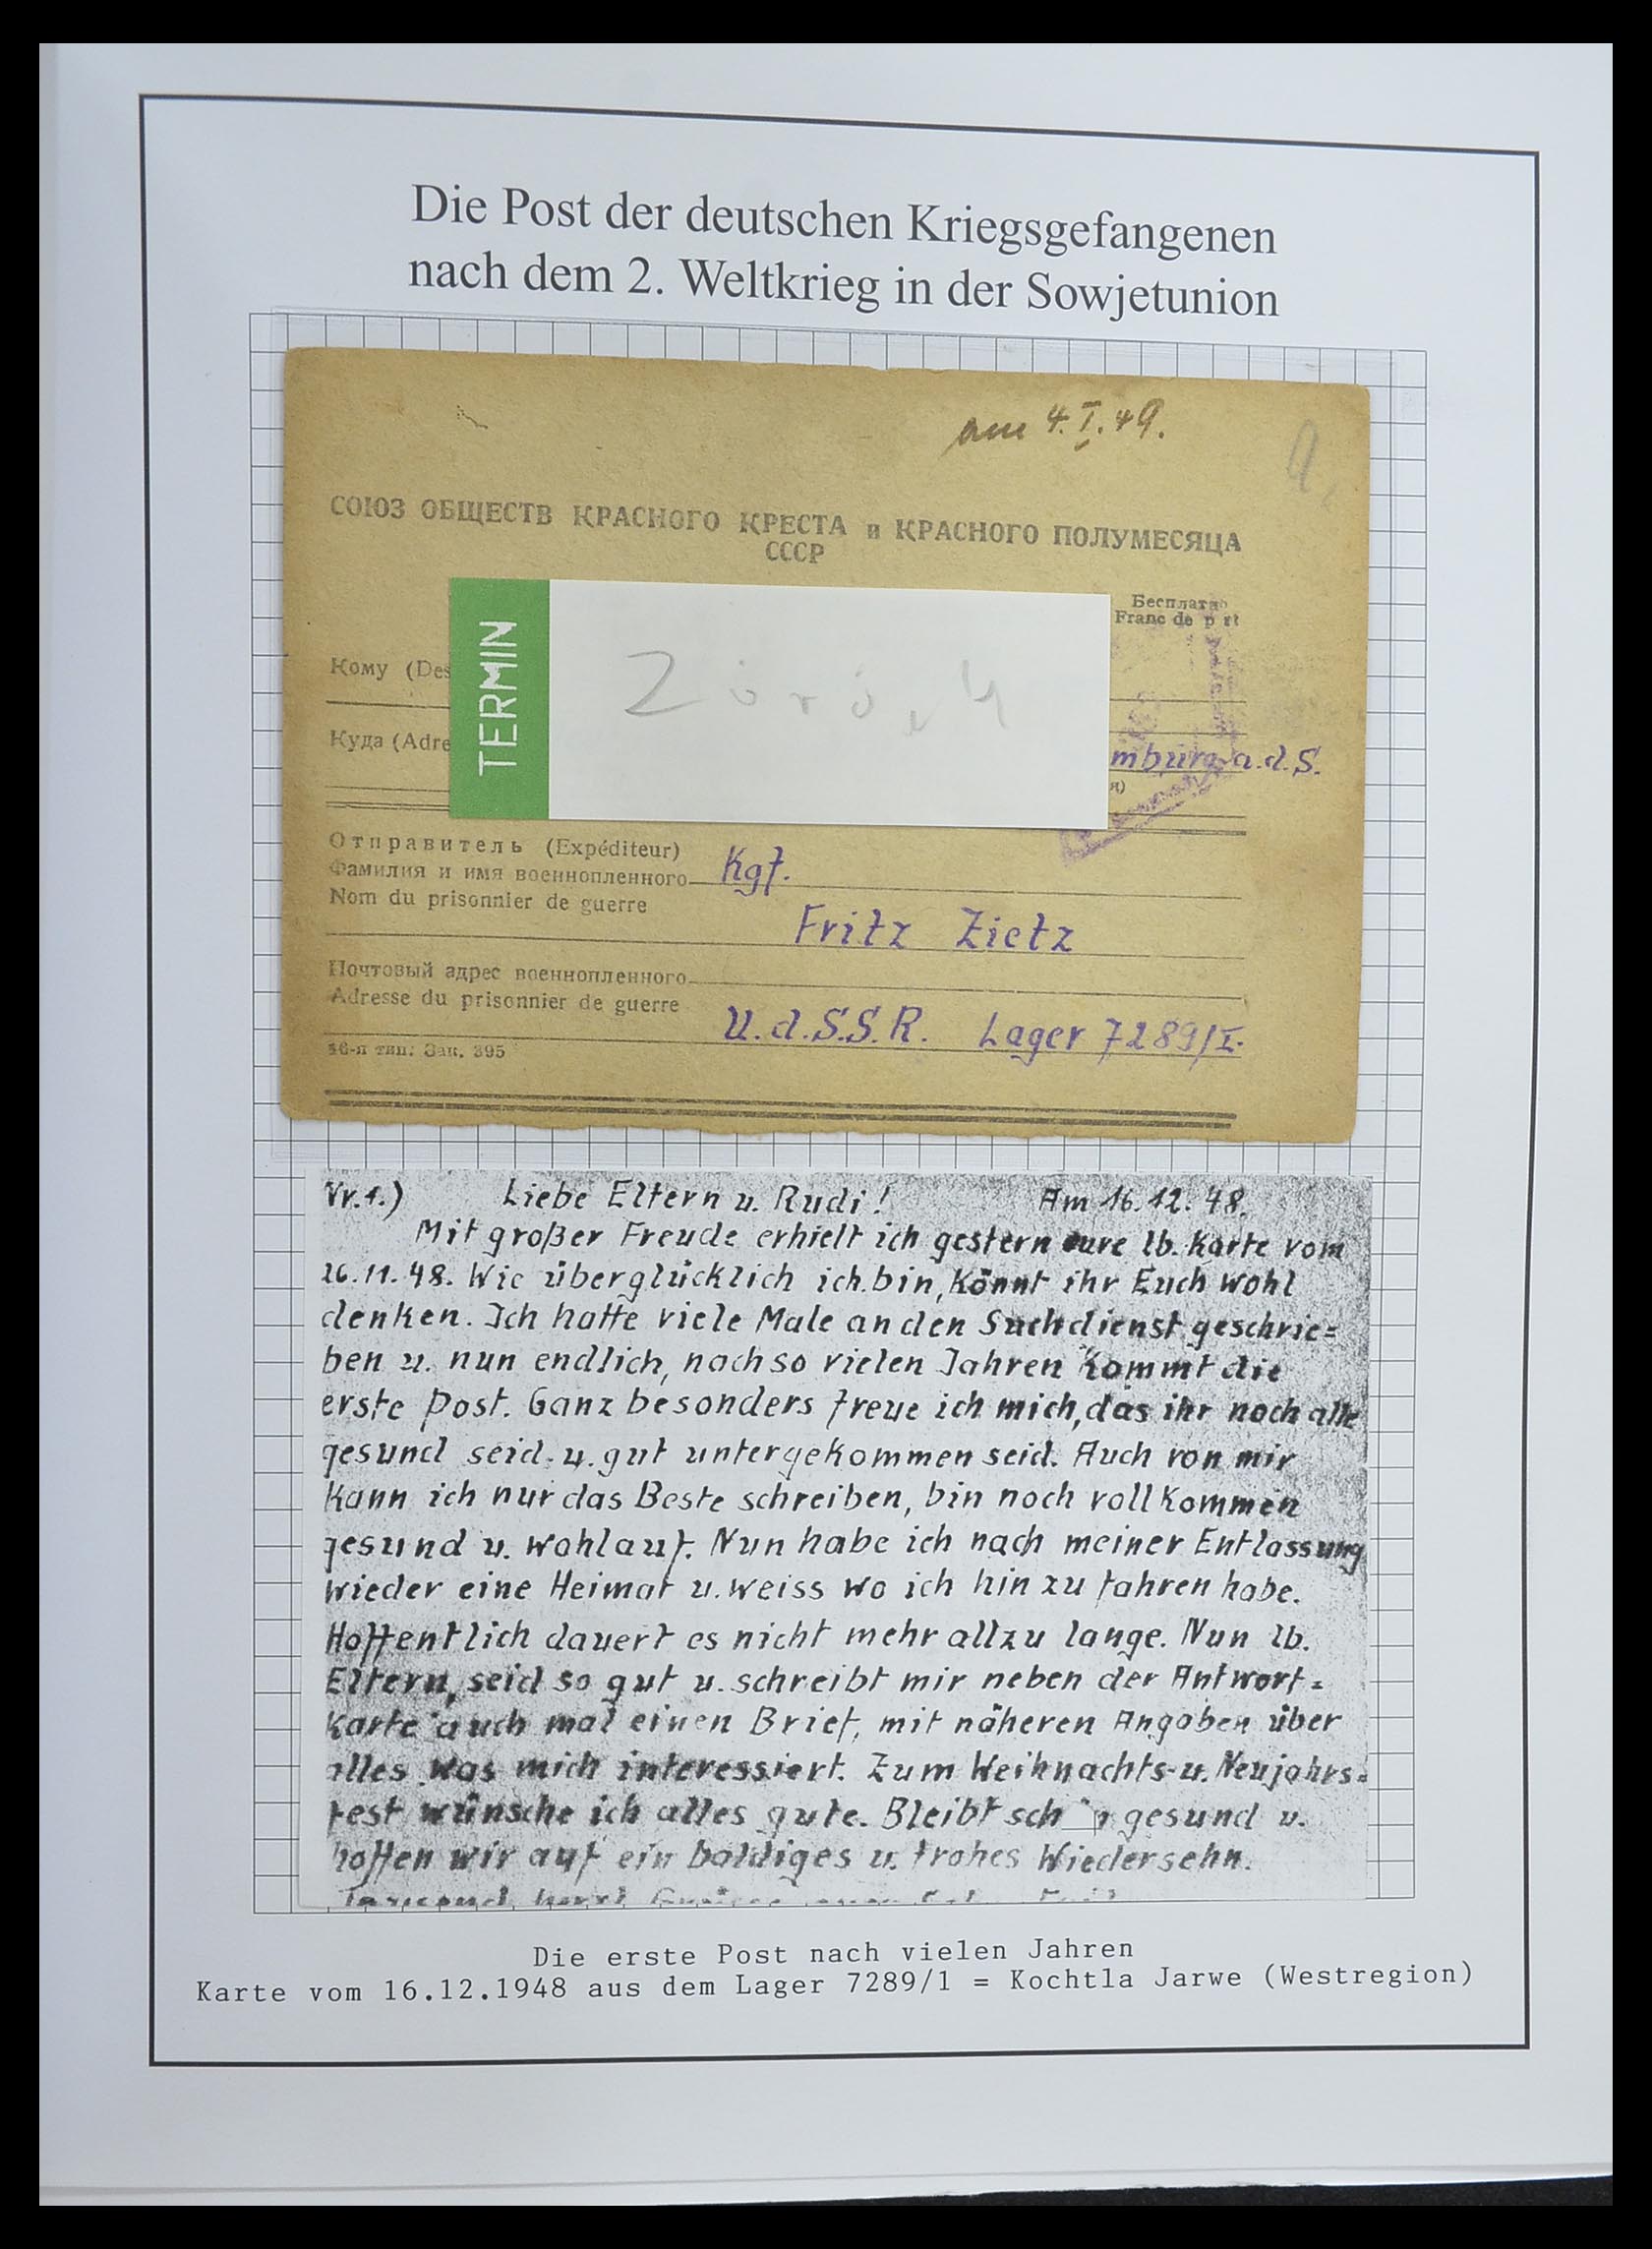 Die Post der deutschen Kriegsgefangenen
nach dem 2. Weltkrieg in der Sowjetunion
am 4. I. 49.
СОЮЗ ОБЩЕСТВ КРАСНОГО КРЕСТА и КРАСНОГО ПОЛУМЕСЯЦА
СССР
Бесплатно
Franc de p rt
TERMIN
Кому (Des
Куда (Adre
mburg a.d.S.
я)
Отправитель (Expéditeur)
Фамилия и имя военнопленного Kgf.
Nom du prisonnier de guerre
Fritz Zietz
Почтовый адрес военнопленного
Adresse du prisonnier de guerre
U.d.S.S.R. Lager 7289/I.
16-я тип. Зак. 395
Nr.1.) Liebe Eltern u. Rudi! Am 16.12.48.
Mit großer Freude erhielt ich gestern eure lb. Karte vom
26.11.48. Wie überglücklich ich bin, könnt ihr Euch wohl
denken. Ich hatte viele Male an den Suchdienst geschrie=
ben u. nun endlich, nach so vielen Jahren kommt die
erste Post. Ganz besonders freue ich mich, das ihr noch alle
gesund seid u. gut untergekommen seid. Auch von mir
kann ich nur das Beste schreiben, bin noch vollkommen
gesund u. wohlauf. Nun habe ich nach meiner Entlassung
wieder eine Heimat u. weiss wo ich hin zu fahren habe.
Hoffentlich dauert es nicht mehr allzu lange. Nun lb.
Eltern, seid so gut u. schreibt mir neben der Antwort=
karte auch mal einen Brief, mit näheren Angaben über
alles was mich interessiert. Zum Weihnachts- u. Neujahrs=
fest wünsche ich alles gute. Bleibt schön gesund u.
hoffen wir auf ein baldiges u. frohes Wiedersehn.
Die erste Post nach vielen Jahren
Karte vom 16.12.1948 aus dem Lager 7289/1 = Kochtla Jarwe (Westregion)